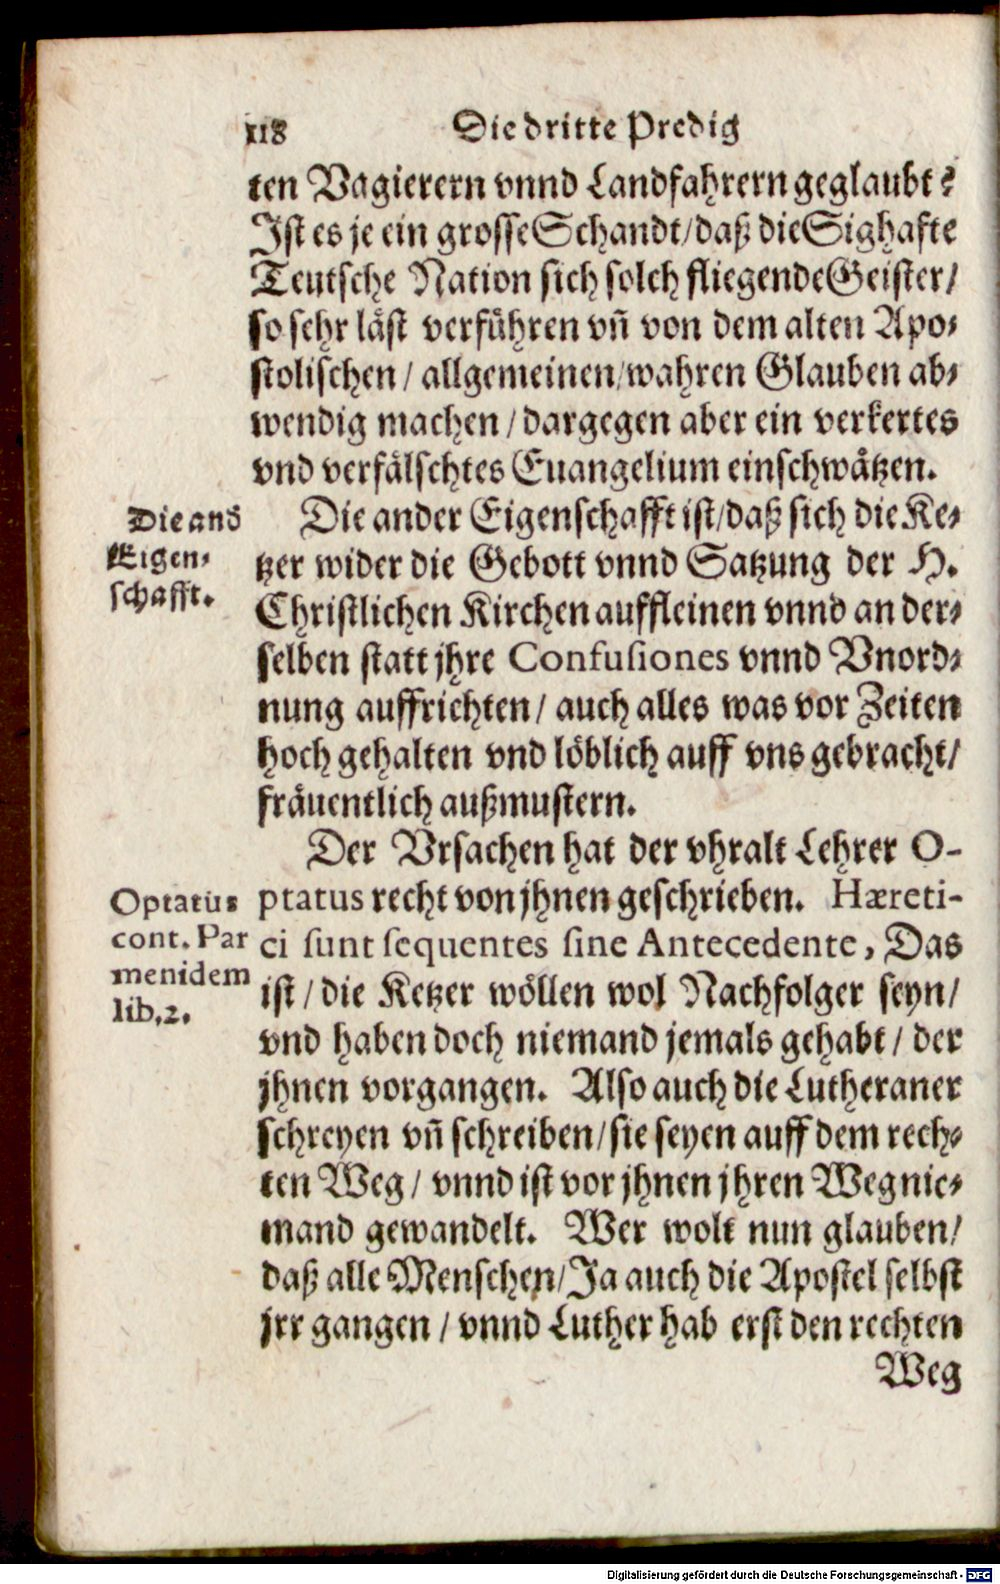 118 Die dritte Predig
ten Vagierern vnnd Landfahrern geglaubt?
Ist es je ein grosse Schandt/daß die Sighafte
Teutsche Nation sich solch fliegende Geister/
so sehr läst verführen vñ von dem alten Apo-
stolischen/ allgemeinen/wahren Glauben ab-
wendig machen/dargegen aber ein verkertes
vnd verfälschtes Euangelium einschwätzen.
Die and
Eigen-
schafft.
Die ander Eigenschafft ist/daß sich die Ke-
tzer wider die Gebott vnnd Satzung der H.
Christlichen Kirchen auffleinen vnnd an der-
selben statt jhre Confusiones vnnd Vnord-
nung auffrichten/ auch alles was vor Zeiten
hoch gehalten vnd löblich auff vns gebracht/
fräuentlich außmustern.
Der Vrsachen hat der vhralt Lehrer O-
Optatus
cont. Par
menidem
lib. 2.
ptatus recht von jhnen geschrieben. Hæreti-
ci sunt sequentes sine Antecedente, Das
ist/ die Ketzer wöllen wol Nachfolger seyn/
vnd haben doch niemand jemals gehabt/ der
jhnen vorgangen. Also auch die Lutheraner
schreyen vñ schreiben/sie seyen auff dem rech-
ten Weg/ vnnd ist vor jhnen jhren Weg nie-
mand gewandelt. Wer wolt nun glauben/
daß alle Menschen/Ja auch die Apostel selbst
jrr gangen/ vnnd Luther hab erst den rechten
Weg
Digitalisierung gefördert durch die Deutsche Forschungsgemeinschaft - DFG